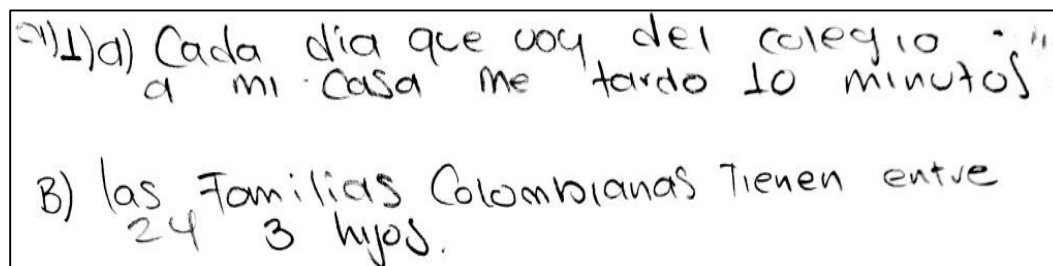 1)a) Cada dia que voy del colegio
a mi casa me tardo 10 minutos
B) las Familias Colombianas Tienen entre
2 y 3 hijos.